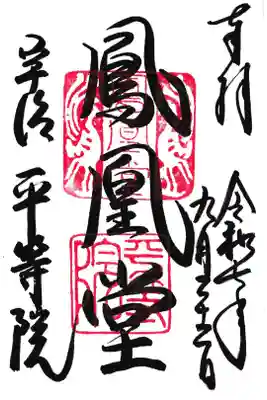 奉拝
令和七年
九月二十
鳳凰堂
宇治 平等院